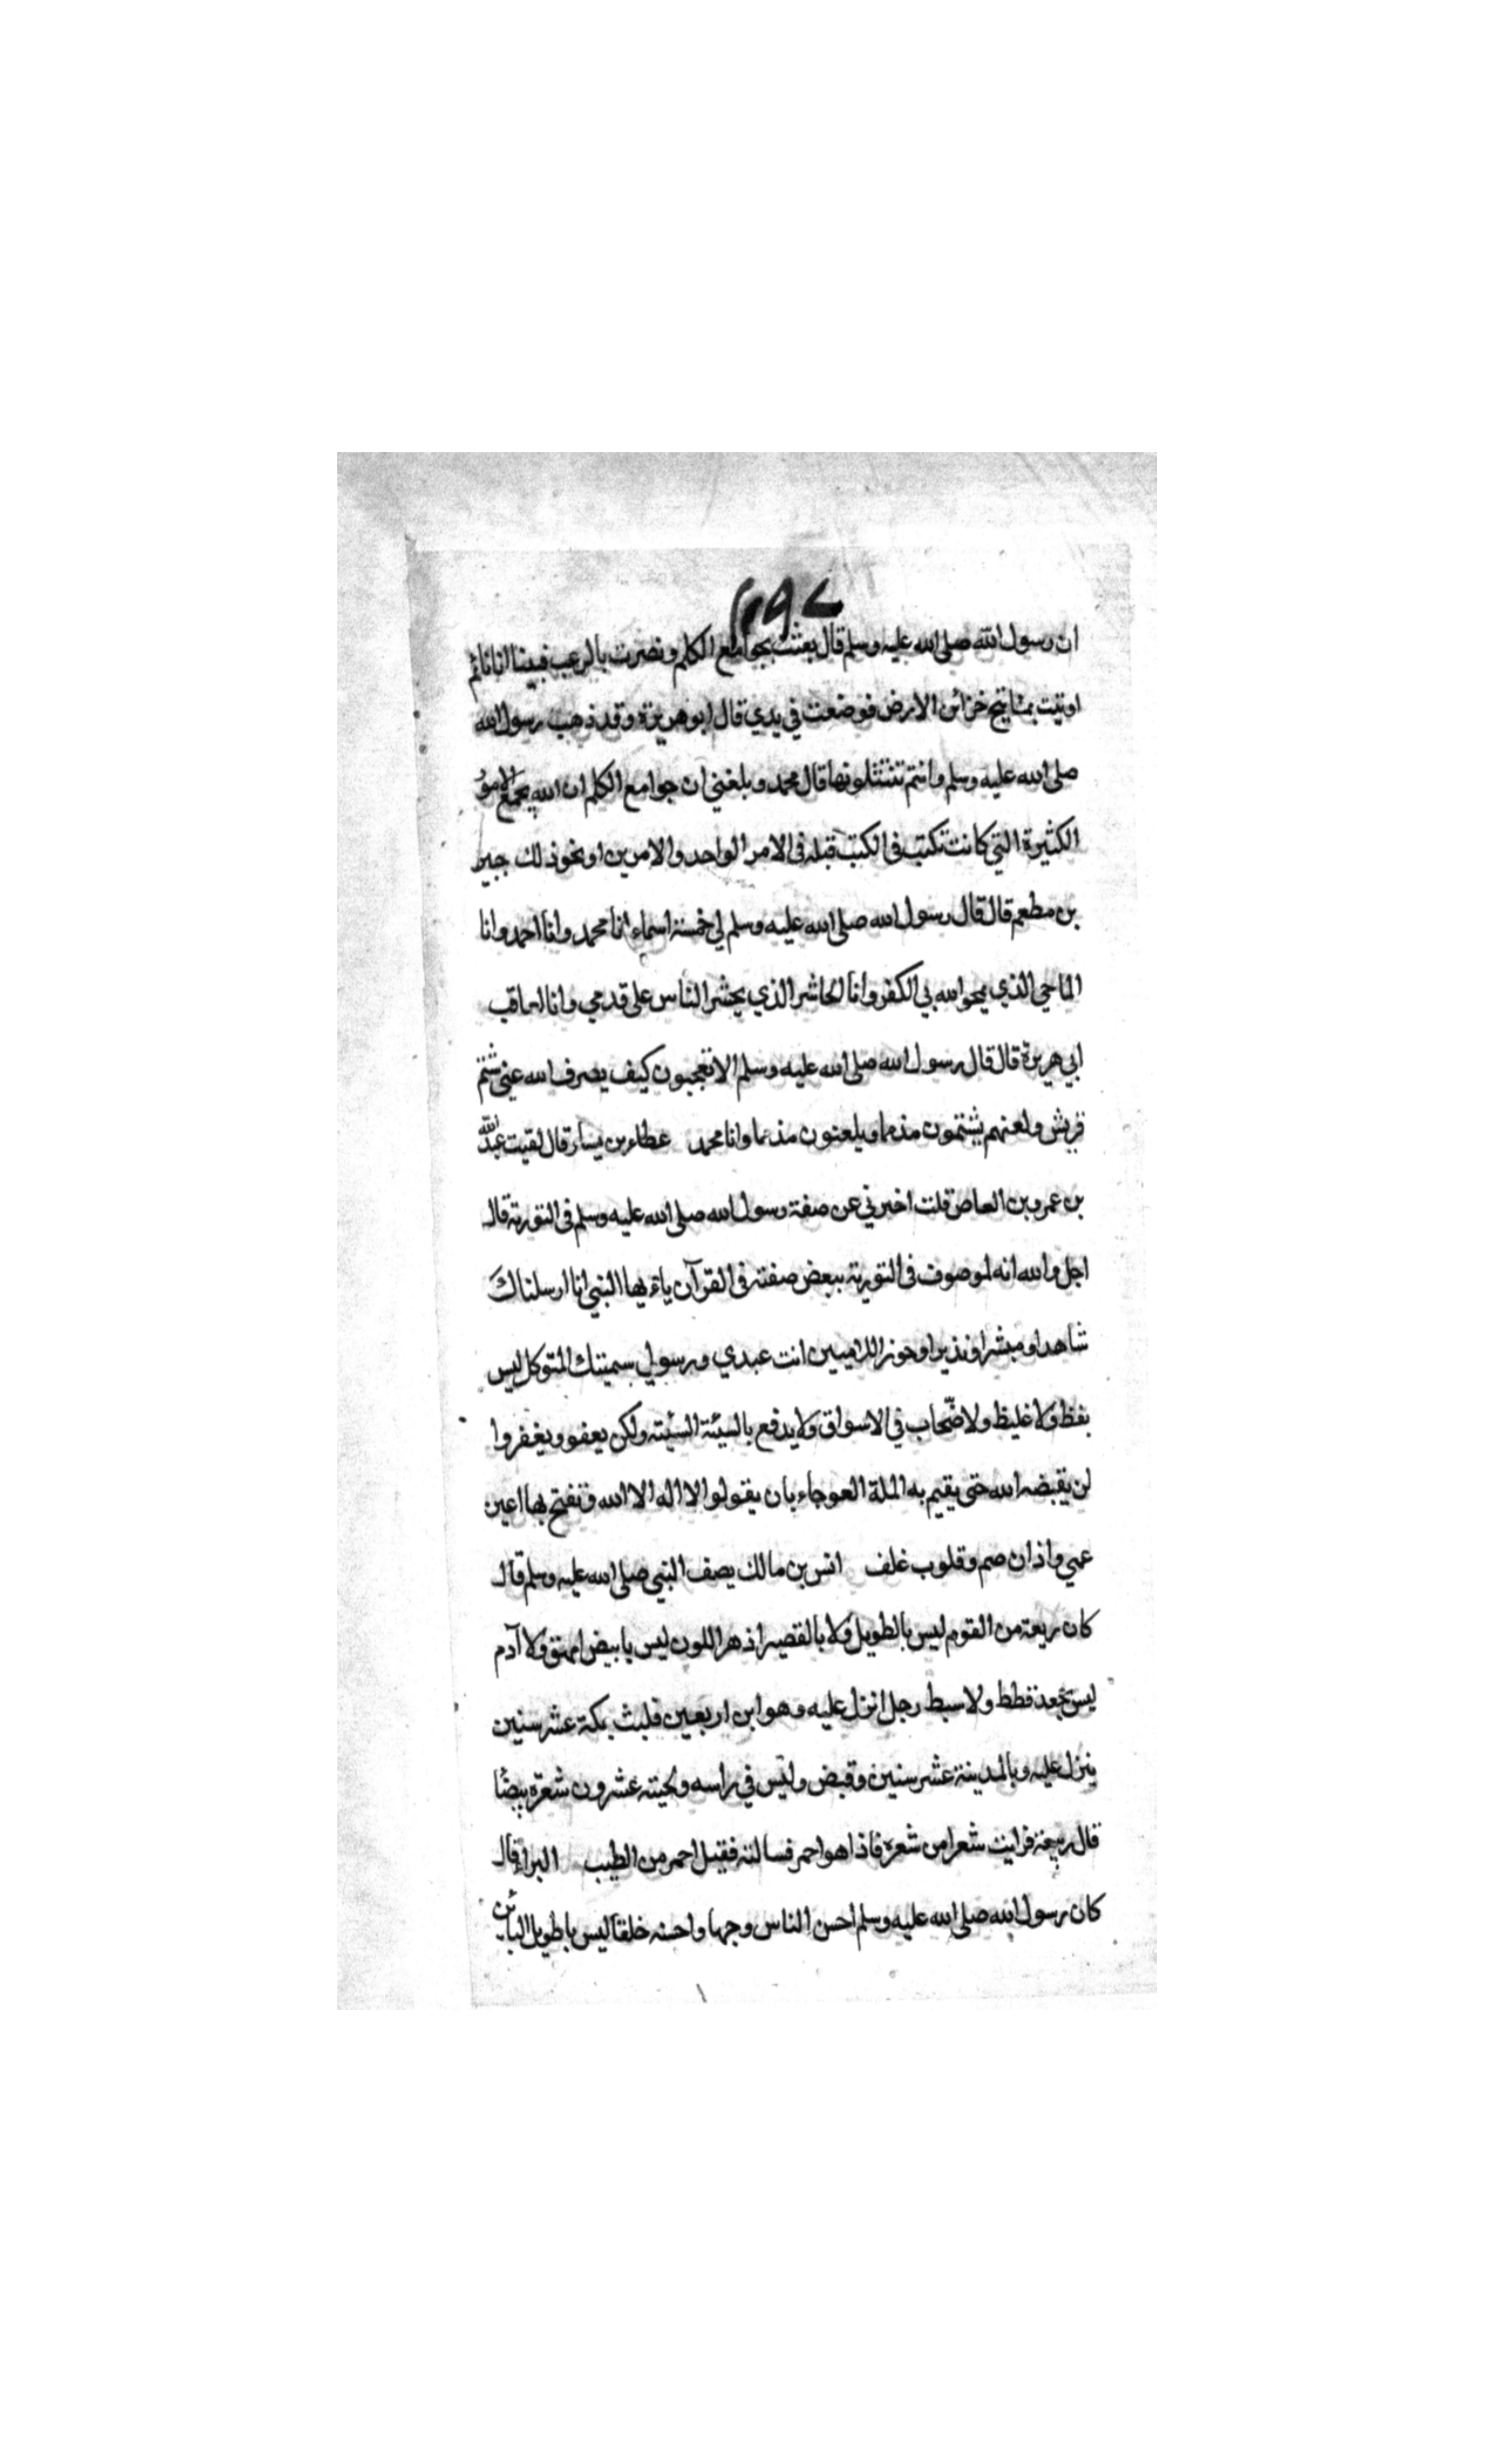 ان رسول الله صلى الله عليه وسلم قال بعثت بجوامع الكلم ونصرت بالرعب فبينا انا نائم
اوتيت بمفاتيح خزائن الارض فوضعت في يدي قال ابو هريرة وقد ذهب رسول الله
صلى الله عليه وسلم وانتم تنتثلونها قال محمد وبلغني ان جوامع الكلم ان الله يجمع الامور
الكثيرة التي كانت تكتب في الكتب قبله في الامر الواحد والامرين او نحو ذلك جبير
بن مطعم قال قال رسول الله صلى الله عليه وسلم لي خمسة اسماء انا محمد وانا احمد وانا
الماحي الذي يمحو الله بي الكفر وانا الحاشر الذي يحشر الناس على قدمي وانا العاقب
ابي هريرة قال قال رسول الله صلى الله عليه وسلم الا تعجبون كيف يصرف الله عني شتم
قريش ولعنهم يشتمون مذمما ويلعنون مذمما وانا محمد عطاء بن يسار قال لقيت عبد الله
بن عمرو بن العاص قلت اخبرني عن صفة رسول الله صلى الله عليه وسلم في التورية قال
اجل والله انه لموصوف في التورية ببعض صفته في القرآن ياءيها النبي انا ارسلناك
شاهدا ومبشرا ونذيرا وحرزا للاميين انت عبدي ورسولي سميتك المتوكل ليس
بفظ ولا غليظ ولا ضحّاب في الاسواق ولا يدفع بالسيئة السيئة ولكن يعفو ويغفر وا
لن يقبضه الله حتى يقيم به الملة العوجاء بان يقولوا لا اله الا الله وتفتح بها اعين
عمي واذان صم وقلوب غلف انس بن مالك يصف النبي صلى الله عليه وسلم قال
كان ربعة من القوم ليس بالطويل ولا بالقصير ازهر اللون ليس بابيض امهق ولا آدم
ليس بجعد قطط ولا سبط رجل انزل عليه وهو ابن اربعين فلبث بمكة عشر سنين
ينزل عليه وبالمدينة عشر سنين وقبض وليس في راسه ولحيته عشرون شعرة بيضا
قال ربيعة فرايت شعرا من شعره فاذا هو احمر فسالته فقيل احمر من الطيب البراء قال
كان رسول الله صلى الله عليه وسلم احسن الناس وجها واحسنه خلقا ليس باطويل البائن